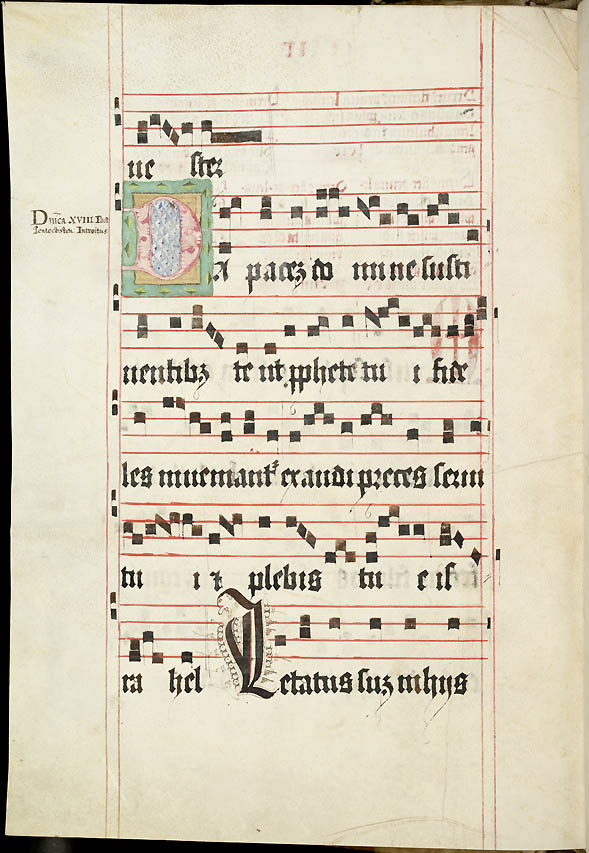 ne ster
Dnica XVIII Post
Pentechosten Introitus
DA pacez do mine susti
nentibz te ut pphete tu i fide
les inueniant exaudi preces serui
tu i z plebis tu e is
ra hel Letatus suz in hijs